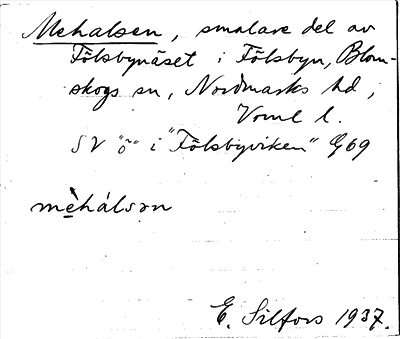 Mehalsen, smalare del av
Fölsbynäset i Fölsbyn, Blom-
skogs sn, Nordmarks hd,
Vrml l.
SV "ö" i "Fölsbyviken" G69
mèhálsən
E. Silfors 1937.